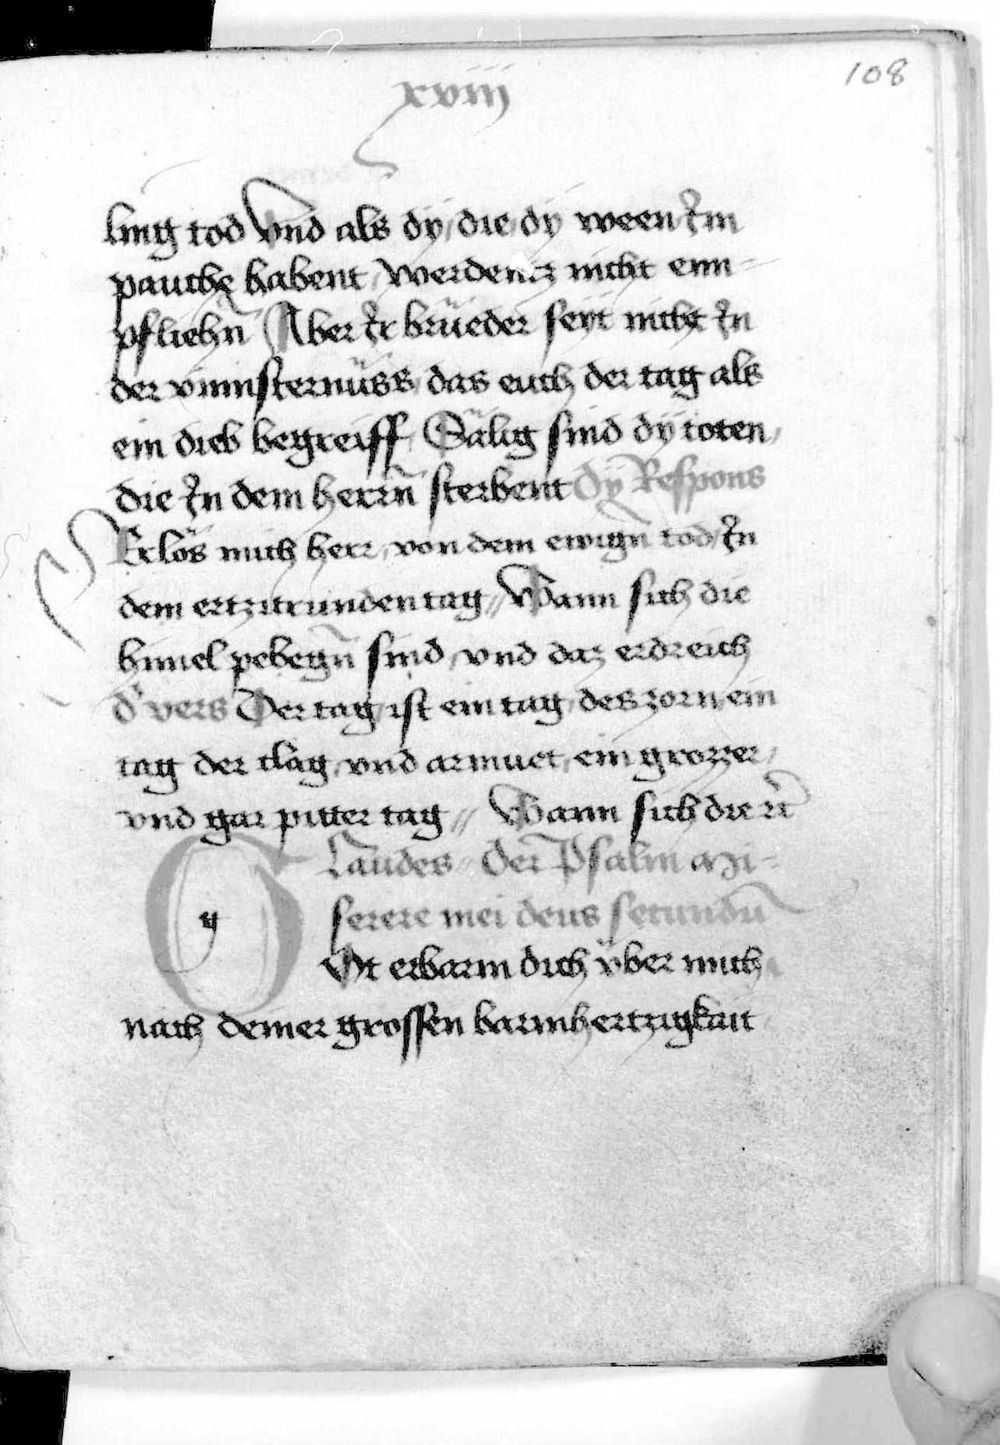 108
xviij
ling tod Vnd als dÿ die dÿ ween im
pauche habent werdentz nicht enn-
pfliehn̄ Aber ir brüeder seÿt nicht in
der vinnsternüss das euch der tag als
ein dieb begreiff Sälig sind dÿ toten
die in dem herrn̄ sterbent dÿ Respons
Erlös mich herr von dem ewign̄ tod in
dem ertzitrunden tag // Wann sich die
himel pebegn̄ sind vnd daz erdreich
d' vers Der tag ist ein tag des zorn ein
tag der clag vnd armuet ein grozzer
vnd gar pitter tag // Wann sich die
Laudes Der Psalm Mi-
serere mei deus secundū
G Ot erbarm dich vber mich
nach deiner grossen barmhertzigkait